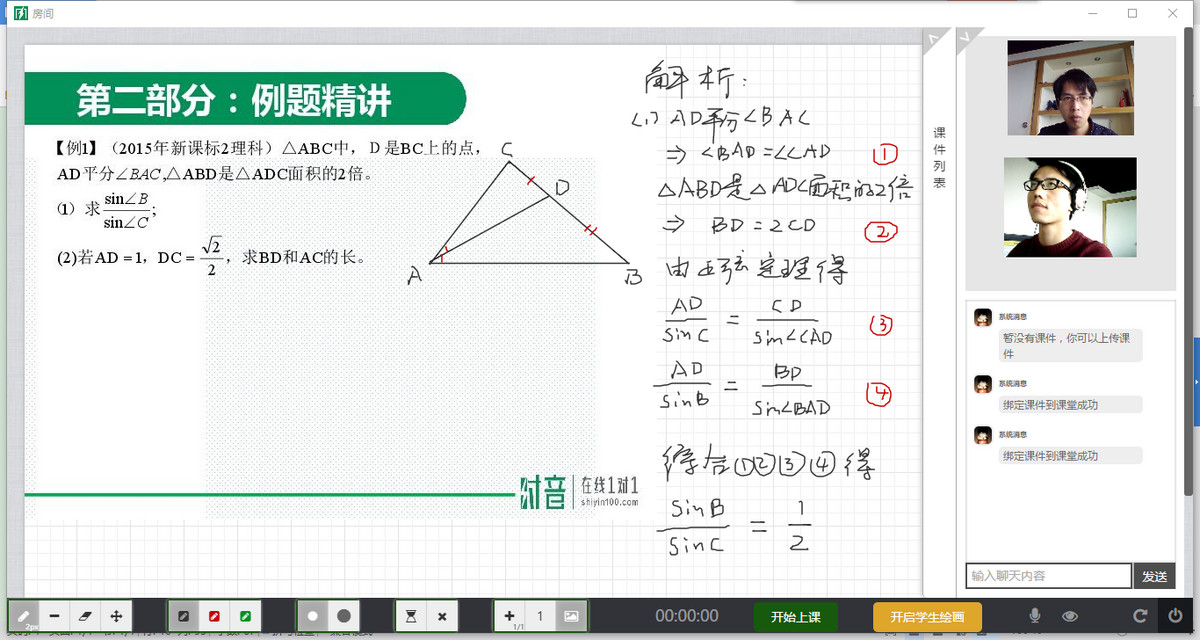 房间
第二部分：例题精讲
【例1】（2015年新课标2理科）△ABC中，D是BC上的点，
AD平分∠BAC,△ABD是△ADC面积的2倍。
（1）求sin∠B/sin∠C;
(2)若AD=1，DC=√2/2，求BD和AC的长。
C
D
A
B
时音
在线1对1
shiyin100.com
解析：
(1) AD平分∠BAC
⇒ ∠BAD=∠CAD ①
△ABD是△ADC面积的2倍
⇒ BD=2CD ②
由正弦定理得
AD/sinC = CD/sin∠CAD ③
AD/sinB = BD/sin∠BAD ④
综合①②③④得
sinB/sinC = 1/2
课件列表
系统消息
暂没有课件，你可以上传课
件
系统消息
绑定课件到课堂成功
系统消息
绑定课件到课堂成功
输入聊天内容
发送
2px
1/1
1
00:00:00
开始上课
开启学生绘画